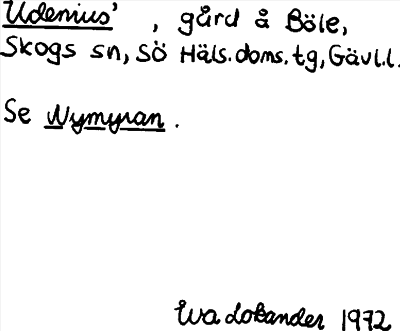 Udenius' , gård å Böle,
Skogs sn, Sö Häls. doms. tg, Gävl.l.
Se Nymyran .
Eva Lobander 1972